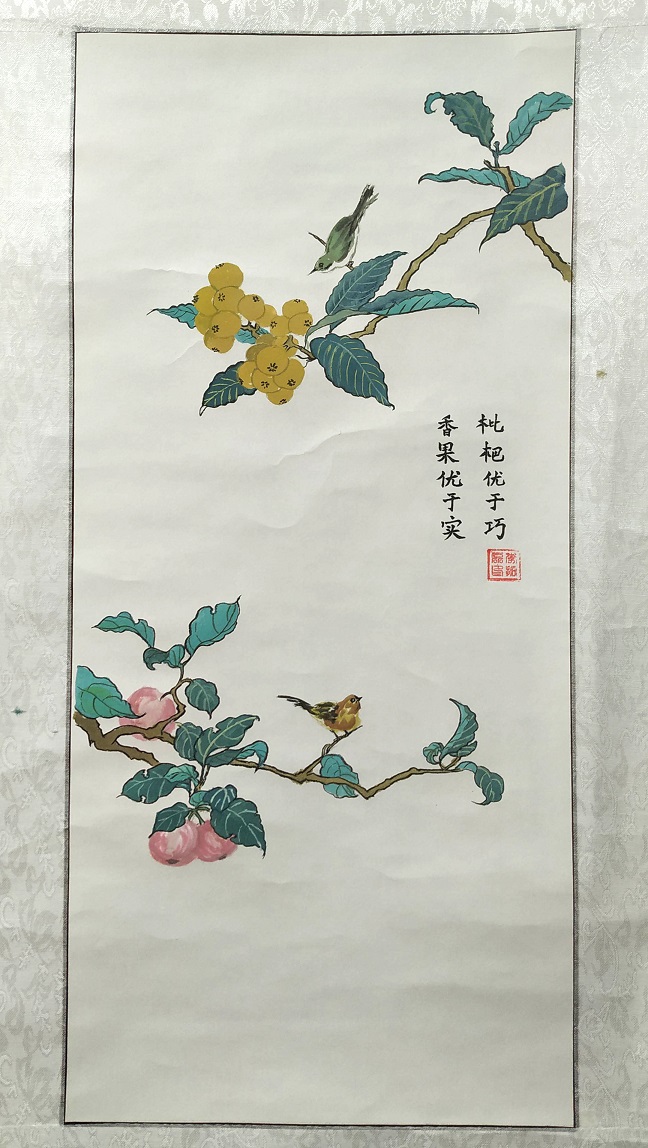 枇杷优于巧
香果优于实